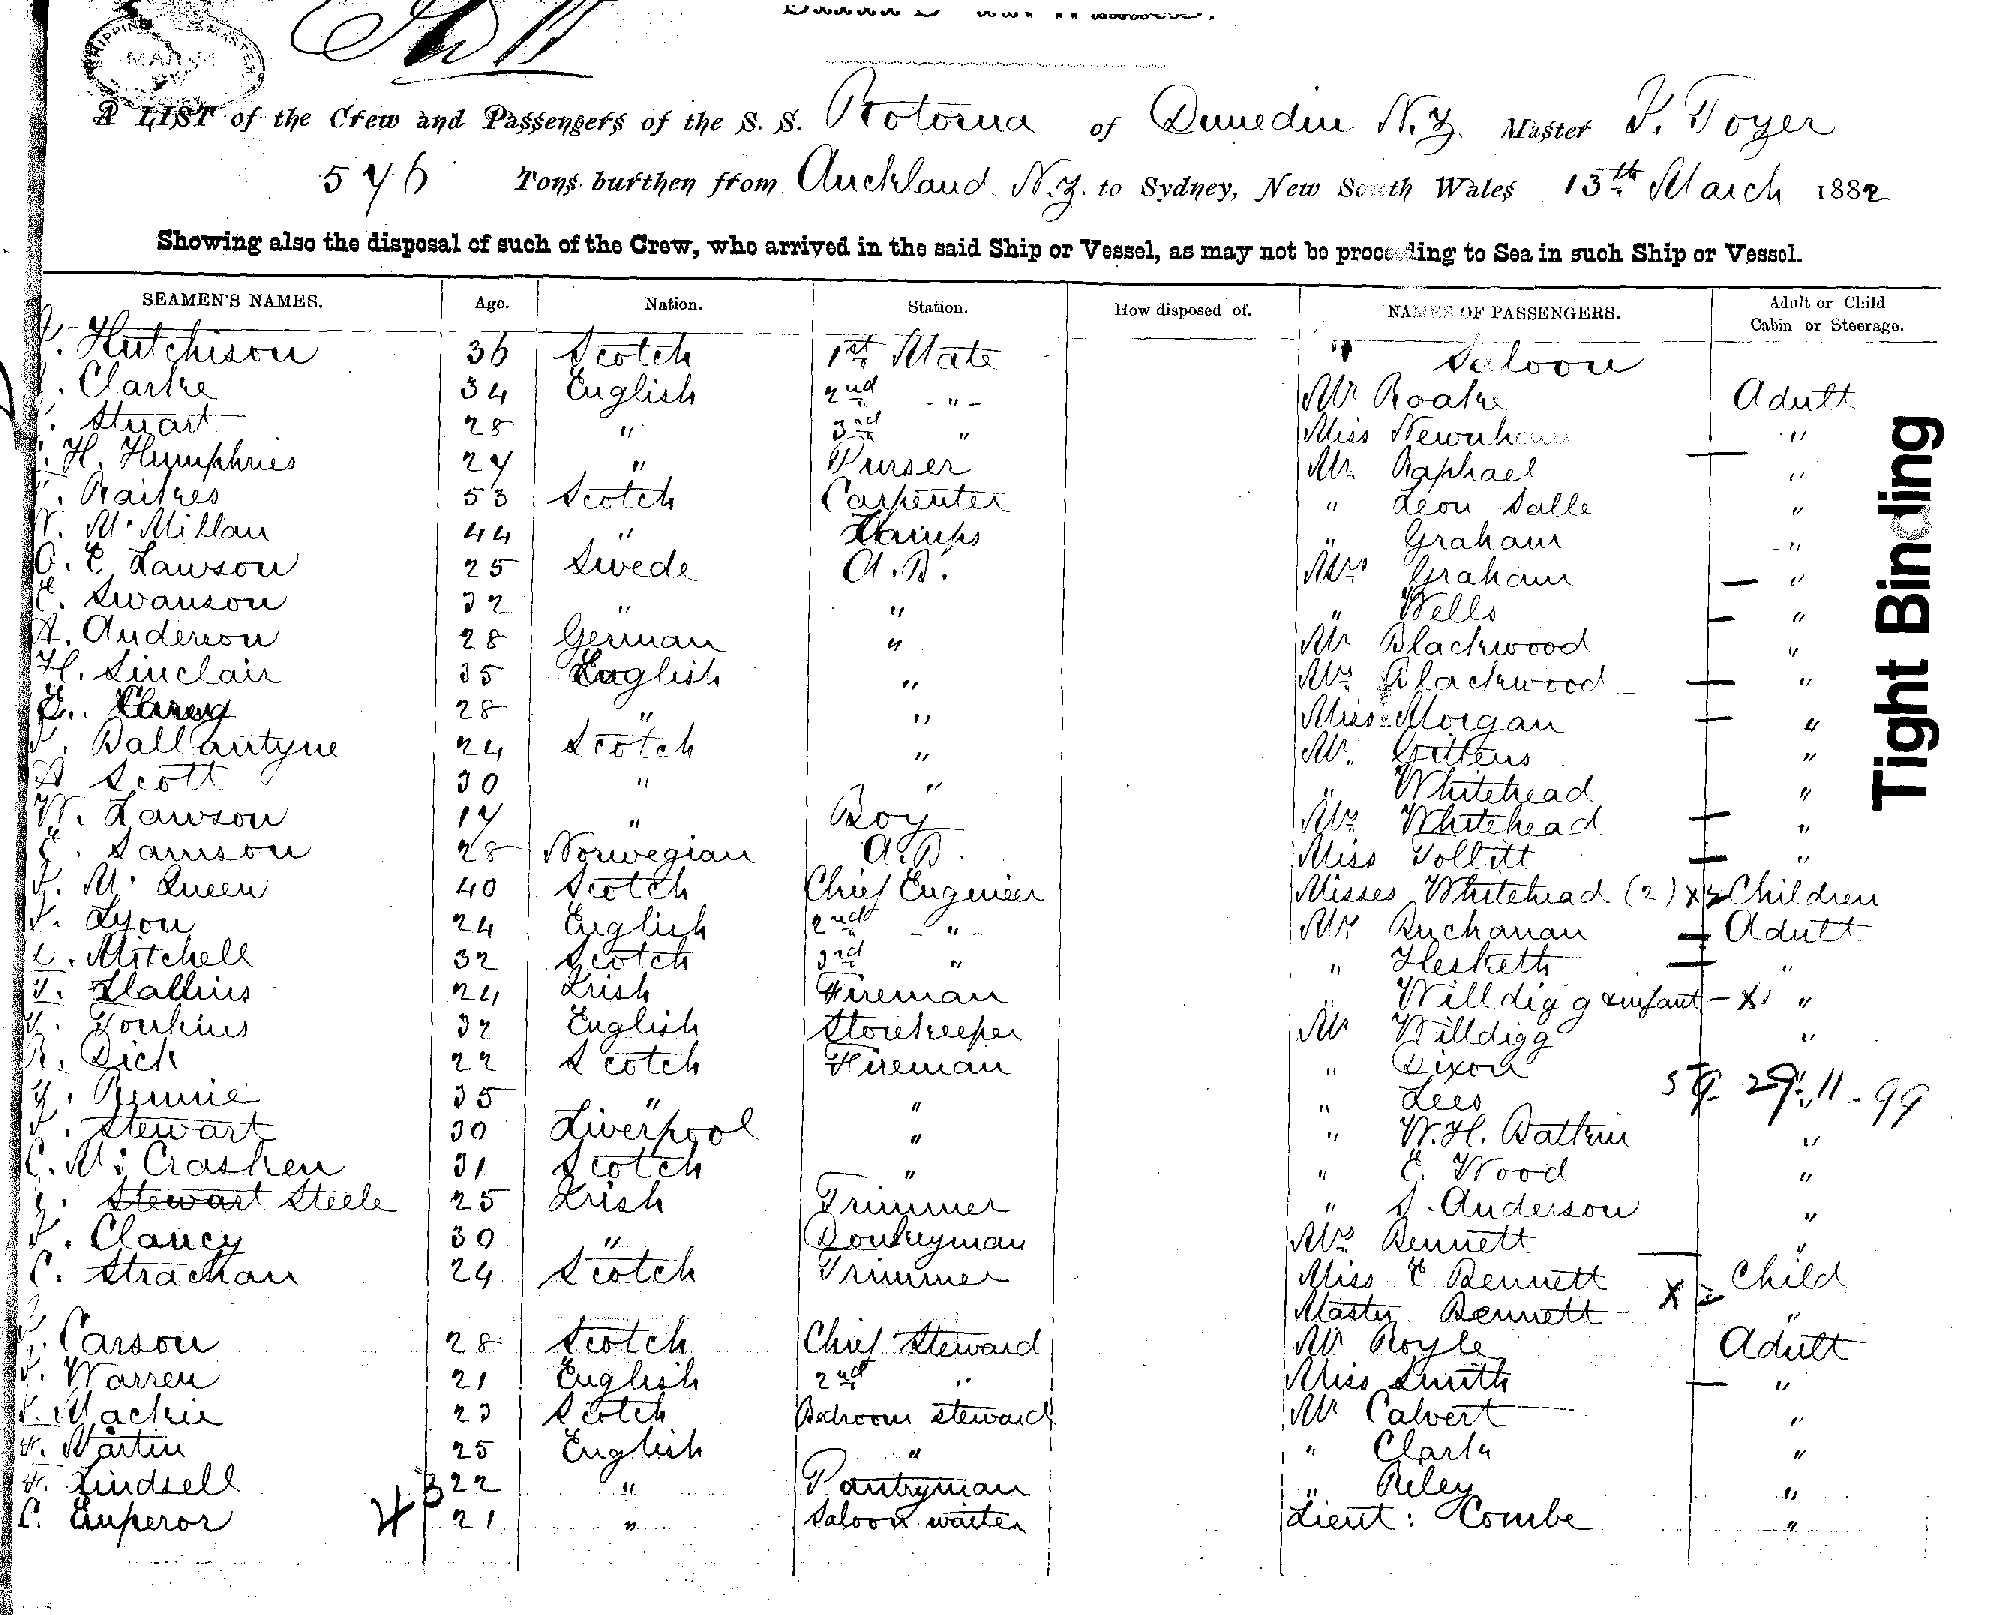 A LIST of the Crew and Passengers of the S. S. Rotorua of Dunedin N.Z. Master
576 Tons burthen from Auckland N.Z. to Sydney, New South Wales 13th March 1882
Showing also the disposal of such of the Crew, who arrived in the said Ship or Vessel, as may not be proceeding to Sea in such Ship or Vessel.
SEAMEN'S NAMES. Age. Nation. Station. How disposed of. NAMES OF PASSENGERS. Adult or Child Cabin or Steerage.
Hutchison 36 Scotch 1st Mate " Saloon
Clarke 34 English 2nd " Mr Roake Adult
Stuart 28 " 3rd " Miss "
H. Humphries 27 " Purser Mr. Raphael "
Raikes 53 Scotch Carpenter " Leon Salle "
McMillan 44 " Lamps " Graham "
O. E. Lawson 25 Swede A.B. Mrs Graham "
Swanson 32 " " " Wells "
A. Anderson 28 German " Mr Blackwood "
H. Sinclair 35 English " Mrs Blackwood "
28 " " Miss Morgan "
Ballantyne 24 Scotch " Mr. Gittens "
A Scott 30 " " " Whitehead "
W. Lawson 17 " Boy Mrs Whitehead "
Samson 28 Norwegian A.B. Miss Tolbitt "
McQueen 40 Scotch Chief Engineer Misses Whitehead (2) x 2 Children
Lyon 24 English 2nd " Mrs Buchanan Adult
Mitchell 32 Scotch 3rd " " Hesketh "
24 Irish Fireman " Willdigg & infant - x "
Tonkins 32 English Storekeeper Mr Willdigg "
R. Dick 22 Scotch Fireman " Dixon
Rennie 35 " " " Lees 59. 29. 11 - 99
Stewart 30 Liverpool " " W. H. Batkin "
C. McCrasken 31 Scotch " " E. Wood "
Stewart Steele 25 Irish Trimmer " Anderson "
Clancy 30 " Donkeyman Mrs Bennett "
C. Strachan 24 Scotch Trimmer Miss E Bennett x 2 Child
Master Bennett "
Carson 28 Scotch Chief Steward Mr Royle Adult
Warren 21 English 2nd " Miss Smith "
Mackie 23 Scotch Bedroom steward Mr Calvert "
Martin 25 English " " Clark "
Lindsell 22 " Pantryman " Riley "
C. Emperor 43 21 " Saloon waiter Lieut: Combe "
Tight Binding